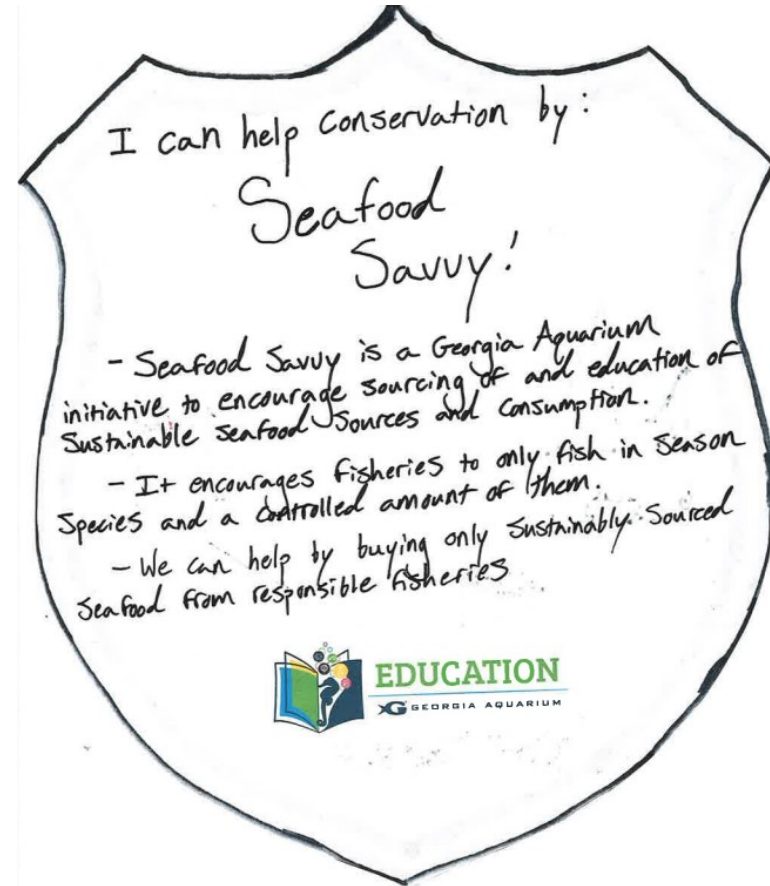 I can help conservation by:
Seafood
Savvy!
- Seafood Savvy is a Georgia Aquarium
initiative to encourage sourcing of and education of
Sustainable seafood sources and consumption.
- It encourages fisheries to only fish in season
species and a controlled amount of them.
- We can help by buying only sustainably sourced
seafood from responsible fisheries
EDUCATION
GEORGIA AQUARIUM